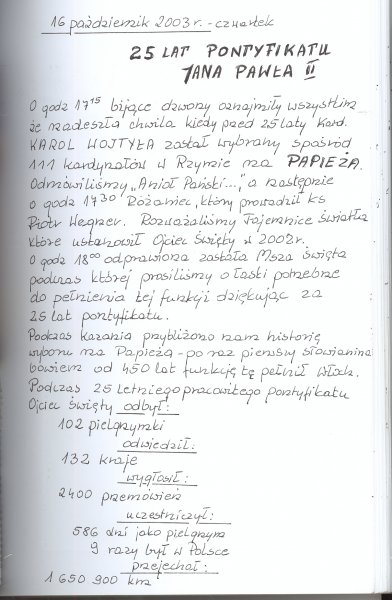 16 październik 2003 r. - czwartek
25 LAT PONTYFIKATU
JANA PAWŁA II
O godz 17¹⁵ bijące dzwony oznajmiły wszystkim
że nadeszła chwila kiedy przed 25 laty Kard.
KAROL WOJTYŁA został wybrany spośród
111 kardynałów w Rzymie na PAPIEŻA.
Odmówiliśmy „Anioł Pański...", a następnie
o godz 17³⁰ Różaniec, który prowadził ks
Piotr Wegner. Rozważaliśmy Tajemnice Światła
które ustanowił Ojciec Święty w 2002r.
O godz 18⁰⁰ odprawiona została Msza Święta
podczas której prosiliśmy o łaski potrzebne
do pełnienia tej funkcji dziękując za
25 lat pontyfikatu.
Podczas kazania przybliżono nam historię
wyboru na Papieża - po raz pierwszy Słowianina
bowiem od 450 lat funkcję tę pełnił Włoch.
Podczas 25 letniego pracowitego pontyfikatu
Ojciec Święty odbył:
102 pielgrzymki
odwiedził:
132 kraje
wygłosił:
2400 przemówień
uczestniczył:
586 dni jako pielgrzym
9 razy był w Polsce
przejechał:
1 650 900 km